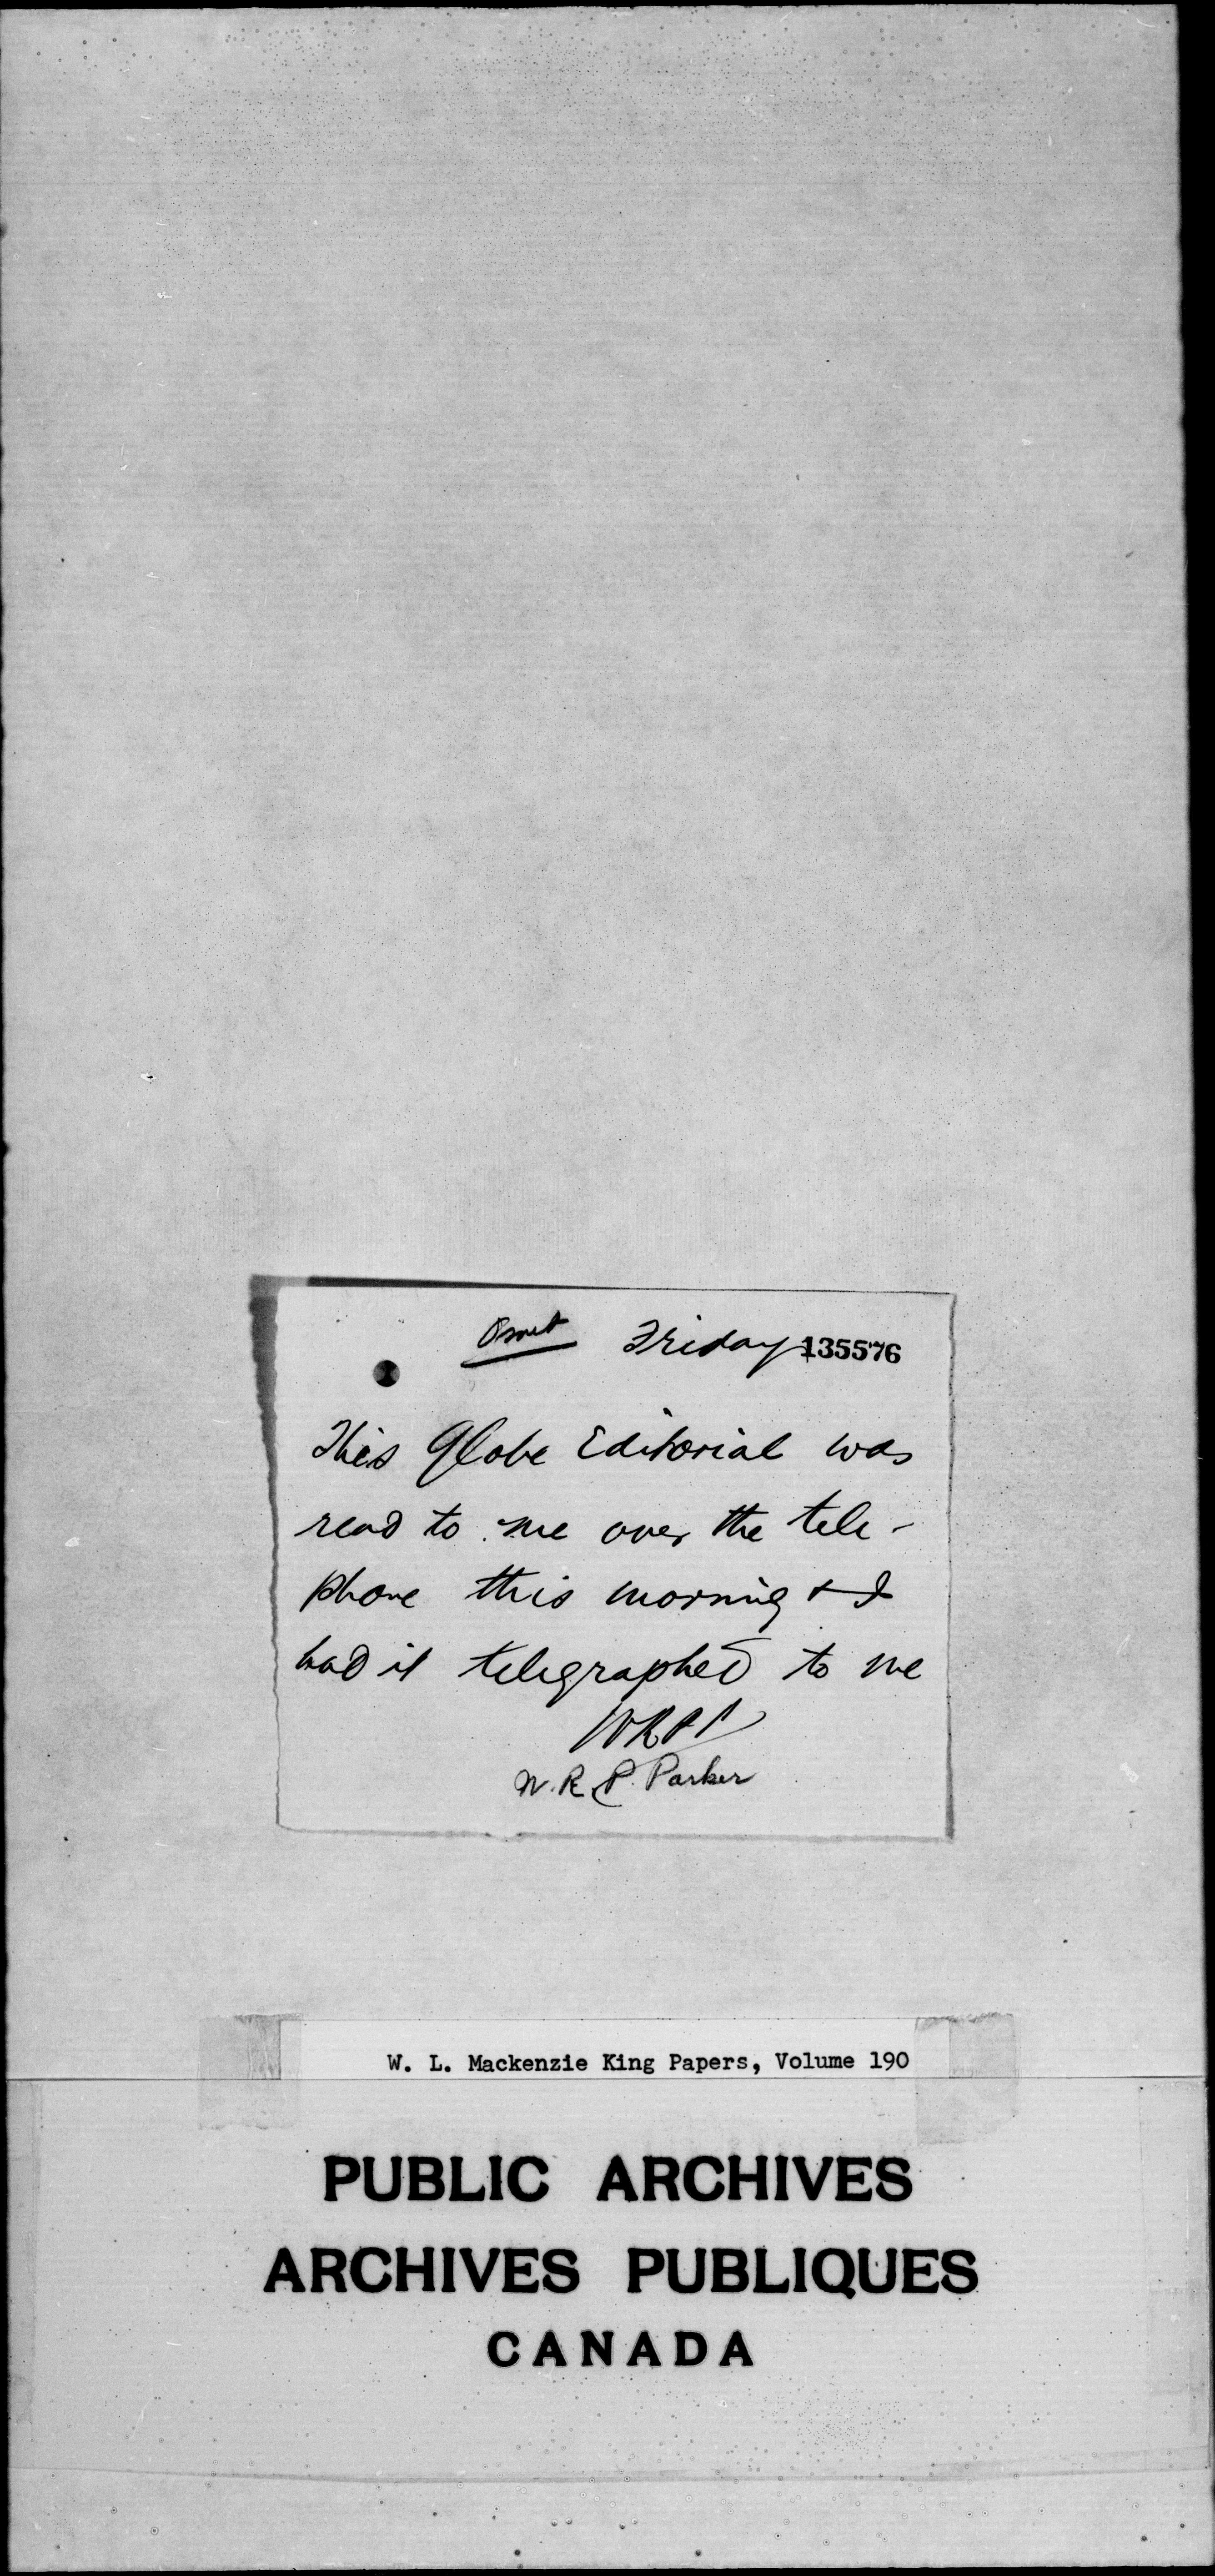 Friday 135576
This Globe Editorial was
read to me over the tele-
phone this morning & I
had it telegraphed to me
WRPP
W. R. P. Parker
W. L. Mackenzie King Papers, Volume 190
PUBLIC ARCHIVES
ARCHIVES PUBLIQUES
CANADA